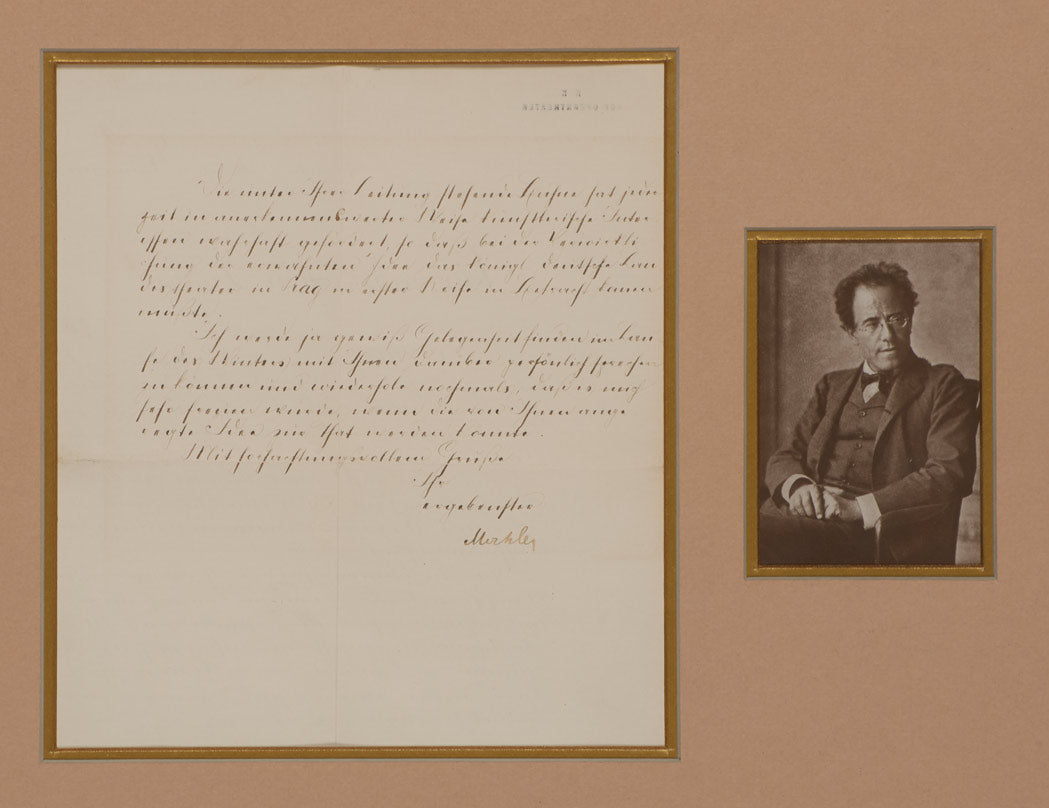 K K
HOF OPERNTHEATER
Die unter Ihrer Leitung stehende Bühne hat jeder
zeit in anerkennenswerter Weise künstlerische Inter
essen wahrhaft gefördert, so daß bei der Verwirkli
chung der erwähnten Idee das königl. deutsche Lan
destheater in Prag in erster Reihe in Betracht kommen
müßte.
Ich werde ja gewiß Gelegenheit finden im Lau
fe des Winters mit Ihnen darüber persönlich sprechen
zu können und wiederhole nochmals, daß es mich
sehr freuen würde, wenn die von Ihnen ange
regte Idee zur That werden könnte.
Mit hochachtungsvollem Gruße
Ihr
ergebenster
Mahler